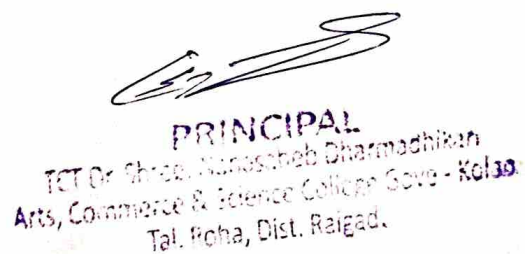 PRINCIPAL
TCT Dr. Shree. Nanasaheb Dharmadhikari
Arts, Commerce & Science College Gove - Kolad.
Tal. Roha, Dist. Raigad.